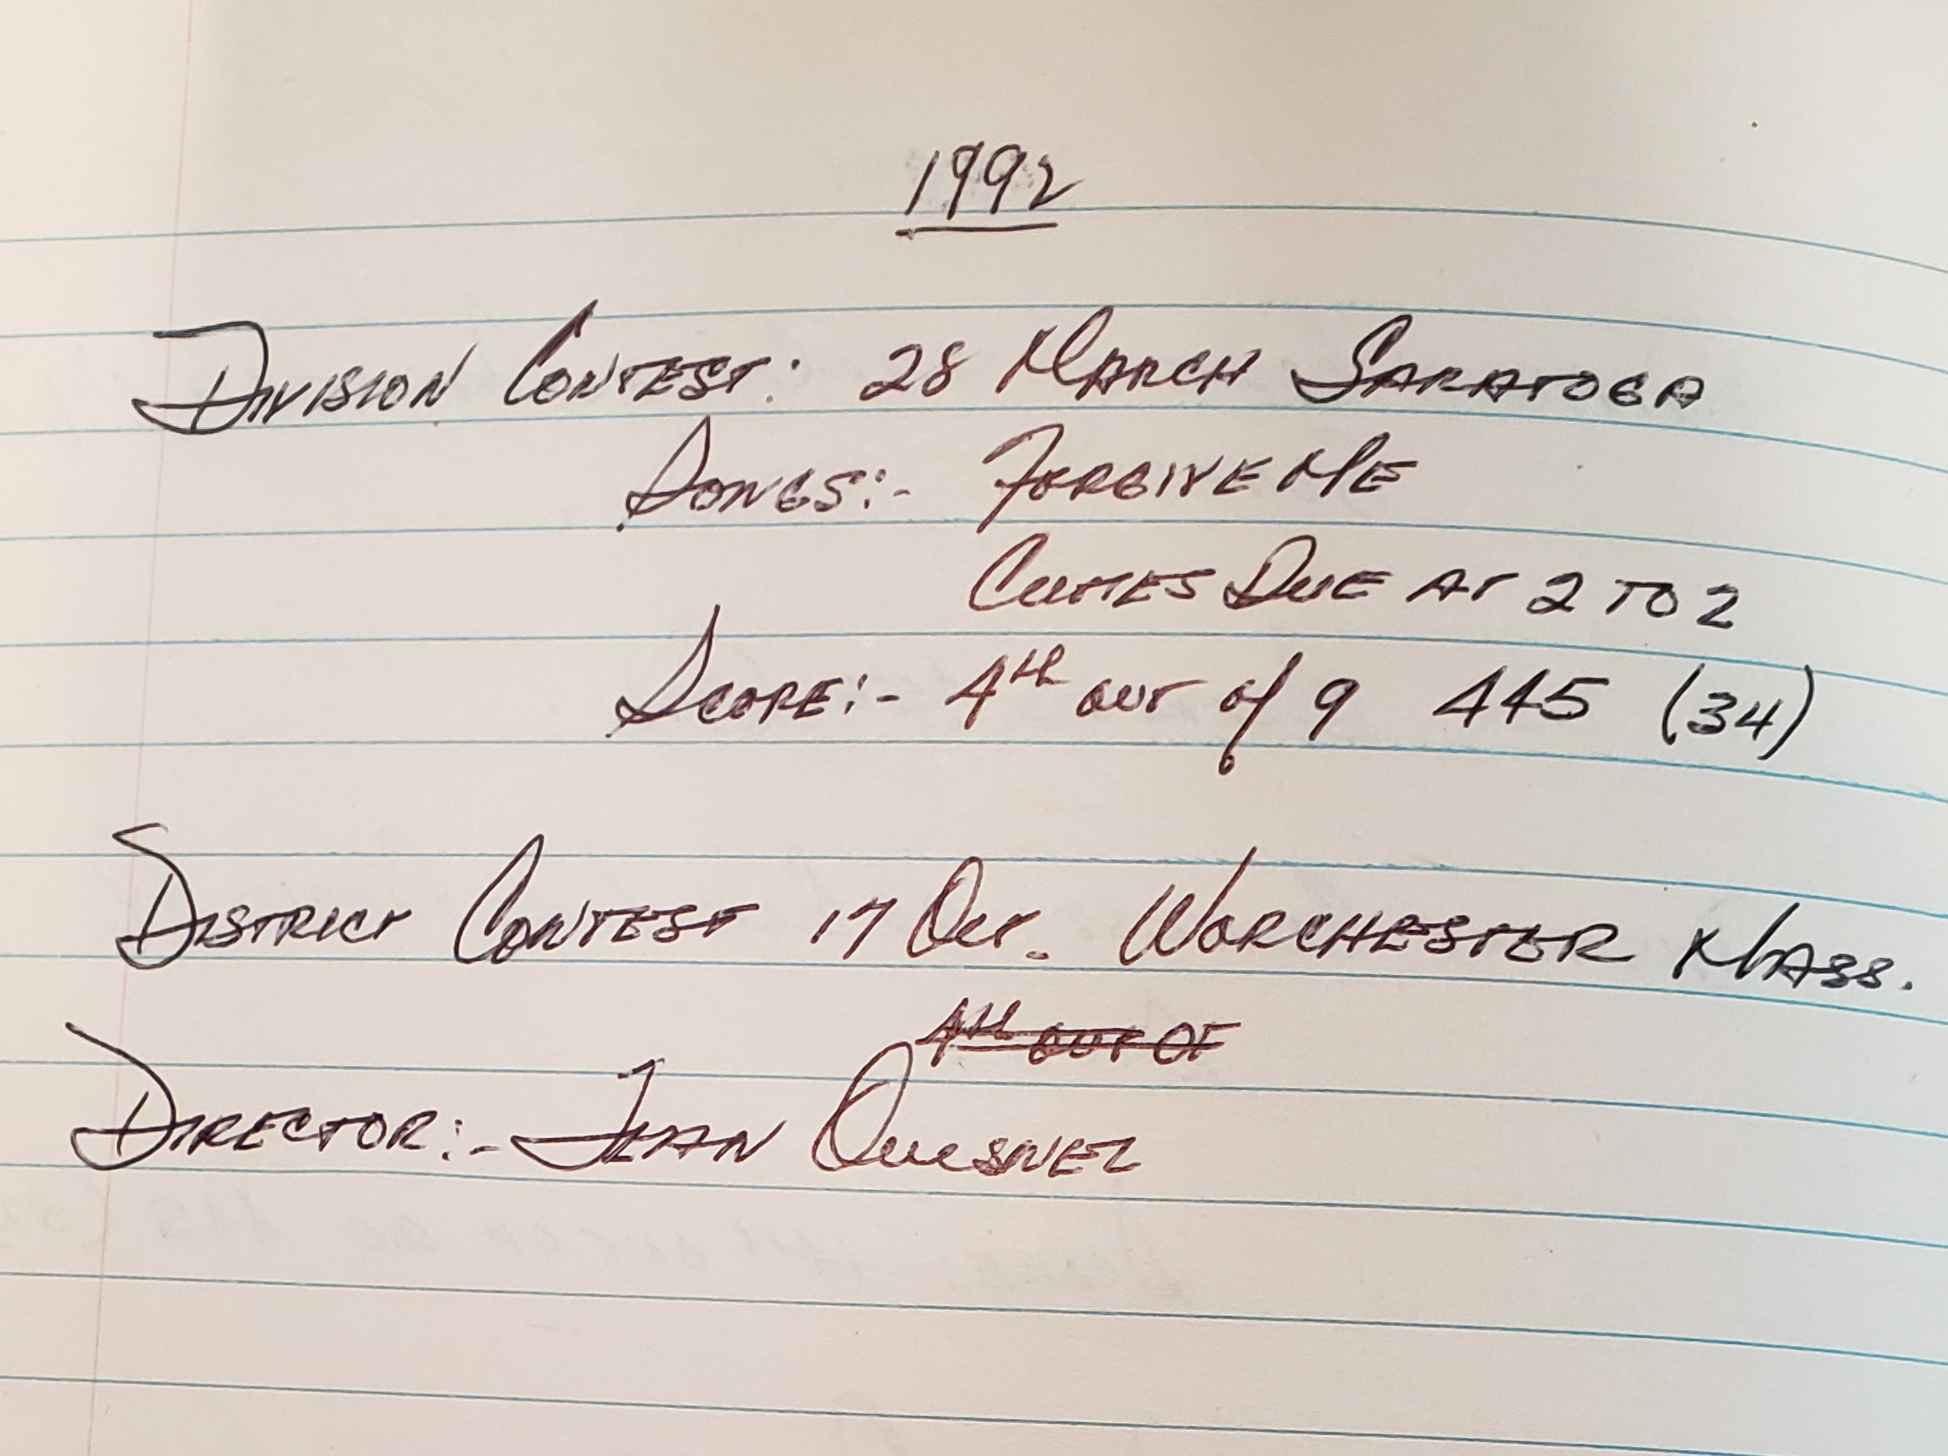 1992
Division Contest: 28 March Saratoga
Songs:- Forgive Me
Cutes Due at 2 to 2
Score:- 4th out of 9 445 (34)
District Contest 17 Oct. Worchester Mass.
4th out of
Director:- Jean Quesnel